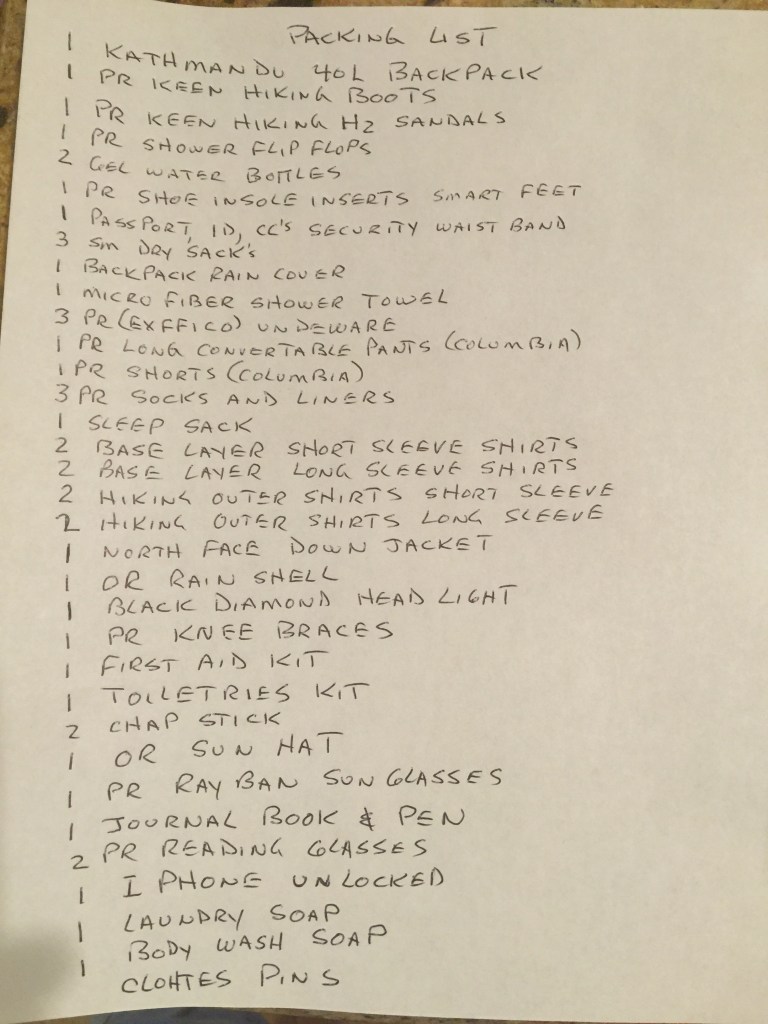 PACKING LIST
1 KATHMANDU 40L BACKPACK
1 PR KEEN HIKING BOOTS
1 PR KEEN HIKING H2 SANDALS
1 PR SHOWER FLIP FLOPS
2 GEL WATER BOTTLES
1 PR SHOE INSOLE INSERTS SMART FEET
1 PASSPORT, ID, CC'S SECURITY WAIST BAND
3 Sm DRY SACK'S
1 BACKPACK RAIN COVER
1 MICRO FIBER SHOWER TOWEL
3 PR (EXFFICO) UNDEWARE
1 PR LONG CONVERTABLE PANTS (COLUMBIA)
1 PR SHORTS (COLUMBIA)
3 PR SOCKS AND LINERS
1 SLEEP SACK
2 BASE LAYER SHORT SLEEVE SHIRTS
2 BASE LAYER LONG SLEEVE SHIRTS
2 HIKING OUTER SHIRTS SHORT SLEEVE
2 HIKING OUTER SHIRTS LONG SLEEVE
1 NORTH FACE DOWN JACKET
1 OR RAIN SHELL
1 BLACK DIAMOND HEAD LIGHT
1 PR KNEE BRACES
1 FIRST AID KIT
1 TOILETRIES KIT
2 CHAP STICK
1 OR SUN HAT
1 PR RAY BAN SUN GLASSES
1 JOURNAL BOOK & PEN
2 PR READING GLASSES
1 I PHONE UNLOCKED
1 LAUNDRY SOAP
1 BODY WASH SOAP
CLOHTES PINS